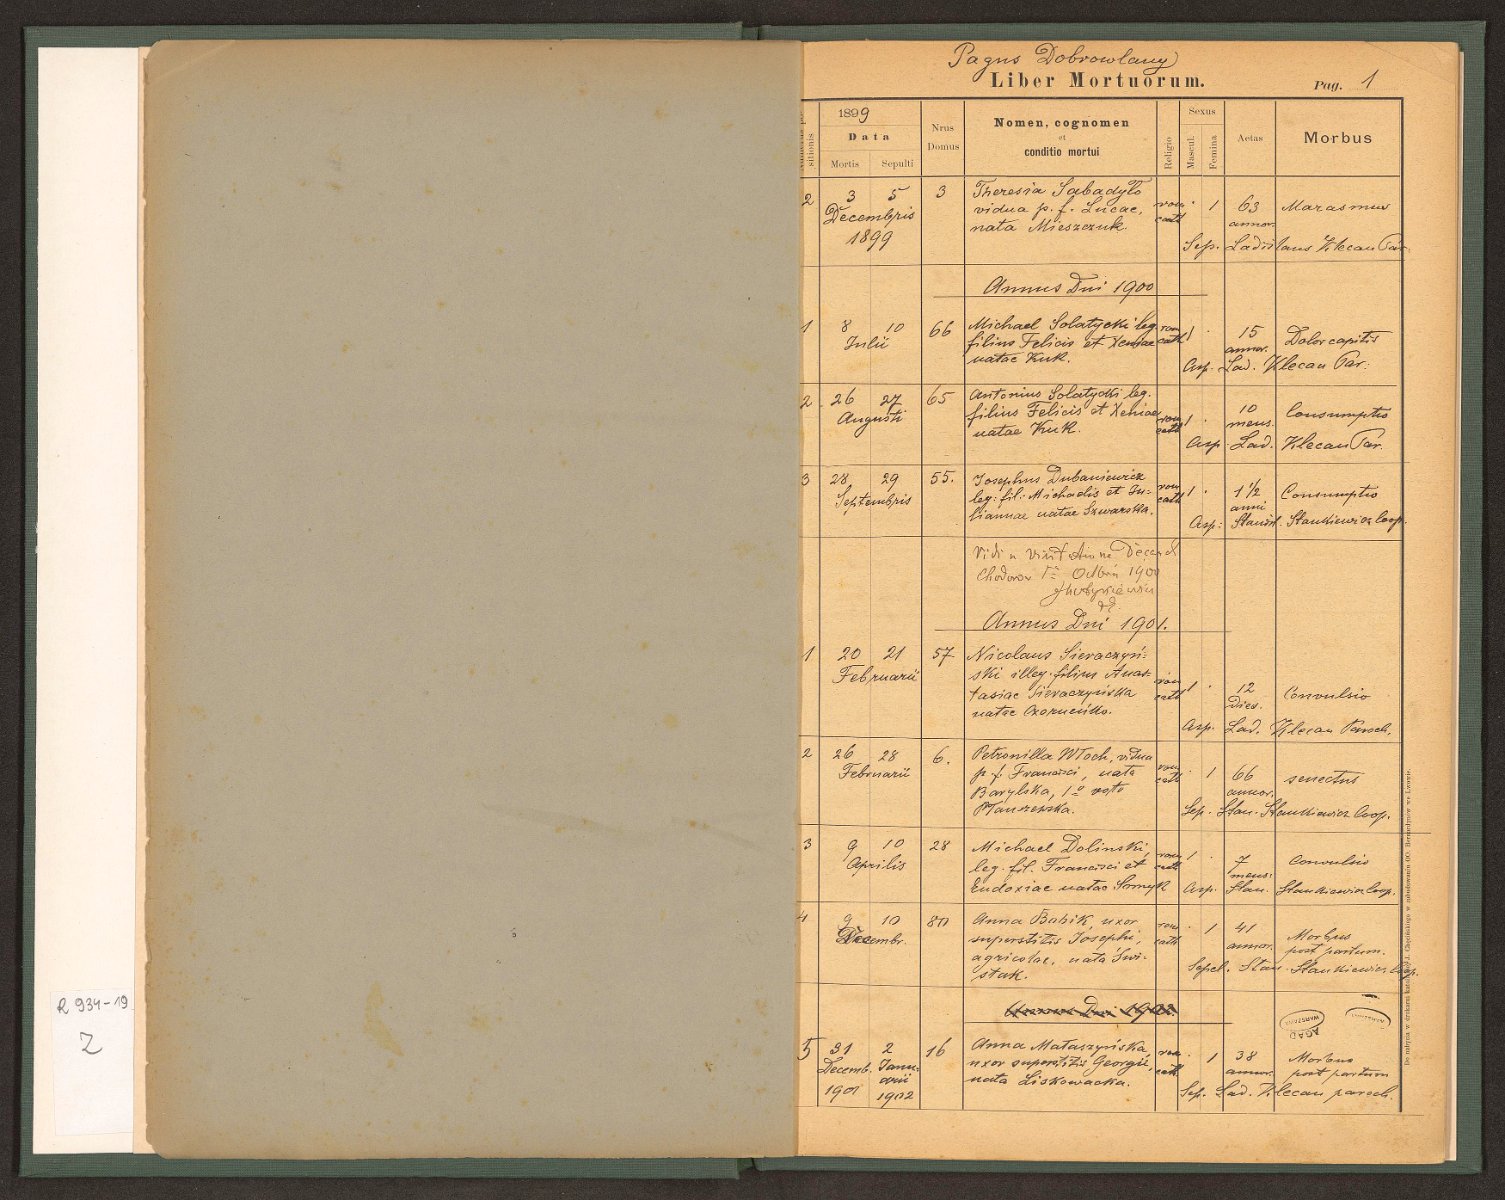 Pagus Dobrowlany
Liber Mortuorum.
Pag. 1
1899
Data
Mortis Sepulti
Nrus Domus
Nomen, cognomen
et
conditio mortui
Religio
Sexus
Mascul. Femina
Aetas
Morbus
2 3 5 3 Theresia Sabadyło rom. 1 63 Marasmus
Decembris vidua p. f. Lucae, cath annor.
1899 nata Mieszczuk.
Sep. Ladislaus Klecan Par.
Annus Dni 1900
1 8 10 66 Michael Solatycki leg. rom 1 15 Dolor capitis
Julii filius Felicis et Xeniae cath annor.
natae Kuk. Asp. Lad. Klecan Par.
2 26 27 65 Antonius Solatycki leg. 10 Consumptio
Augusti filius Felicis et Xeniae rom 1 mens.
natae Kuk. cath Asp. Lad. Klecan Par.
3 28 29 55. Josephus Dubaniewicz rom 1 1 1/2 Consumptio
Septembris leg. fil. Michaelis et Ju- cath anni
liannae natae Szwarska. Asp: Stanisl. Stankiewicz Coop.
Vidi in
1900
Annus Dni 1901.
1 20 21 57 Nicolaus Sieraczyń-
Februarii ski illeg. filius Anas- rom 1 12 Convulsio
tasiae Sieraczyńska cath dies.
natae
Asp. Lad. Klecan Paroch.
2 26 28 6. Petronilla Włoch, vidua rom 1 66 senectus
Februarii p. f. Francisci, nata cath annor.
Barylska, 1o voto
Sep. Stan. Stankiewicz Coop.
3 9 10 28 Michael Dolinski, rom 1 7 Convulsio
Aprilis leg. fil. Francisci et cath mens.
Eudoxiae natae Asp. Stan. Stankiewicz Coop.
4 9 10 80 Anna Babik, uxor rom 1 41 Morbus
Decembr. superstitis Josephi, cath annor. post partum.
agricolae, nata Świ-
stak. Sepel. Stan. Stankiewicz Coop.
Annus Dni 1902
AGAD
WARSZAWA
5 31 2 16 Anna Mataszyńska, rom 1 38 Morbus
Decemb. Janu- uxor superstitis Georgii, cath annor. post partum
1901 arii nata Liskowacka.
1902 Sep. Lad. Klecan paroch.
R 934-19
2